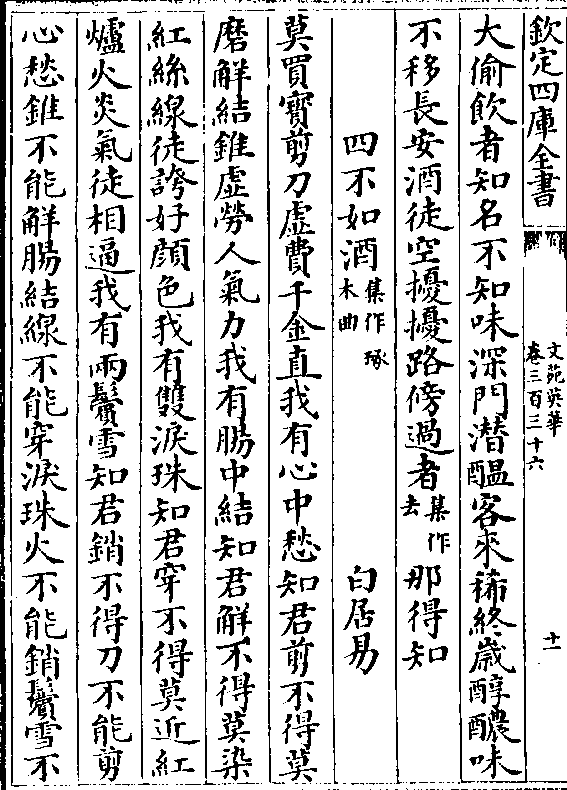 欽定四庫全書
文苑英華
卷三百三十六
十一
大偷飲者知名不知味深門潜醖客來稀終歲醇醲味
不移長安酒徒空擾擾路傍過者集作去那得知
四不如酒集作琢木曲 白居易
莫買寳剪刀虚費千金直我有心中愁知君剪不得莫
磨解結錐虚勞人氣力我有腸中結知君解不得莫染
紅絲線徒誇好顔色我有雙淚珠知君穿不得莫近紅
爐火炎氣徒相逼我有兩鬢雪知君銷不得刀不能剪
心愁錐不能解腸結線不能穿淚珠火不能銷鬢雪不